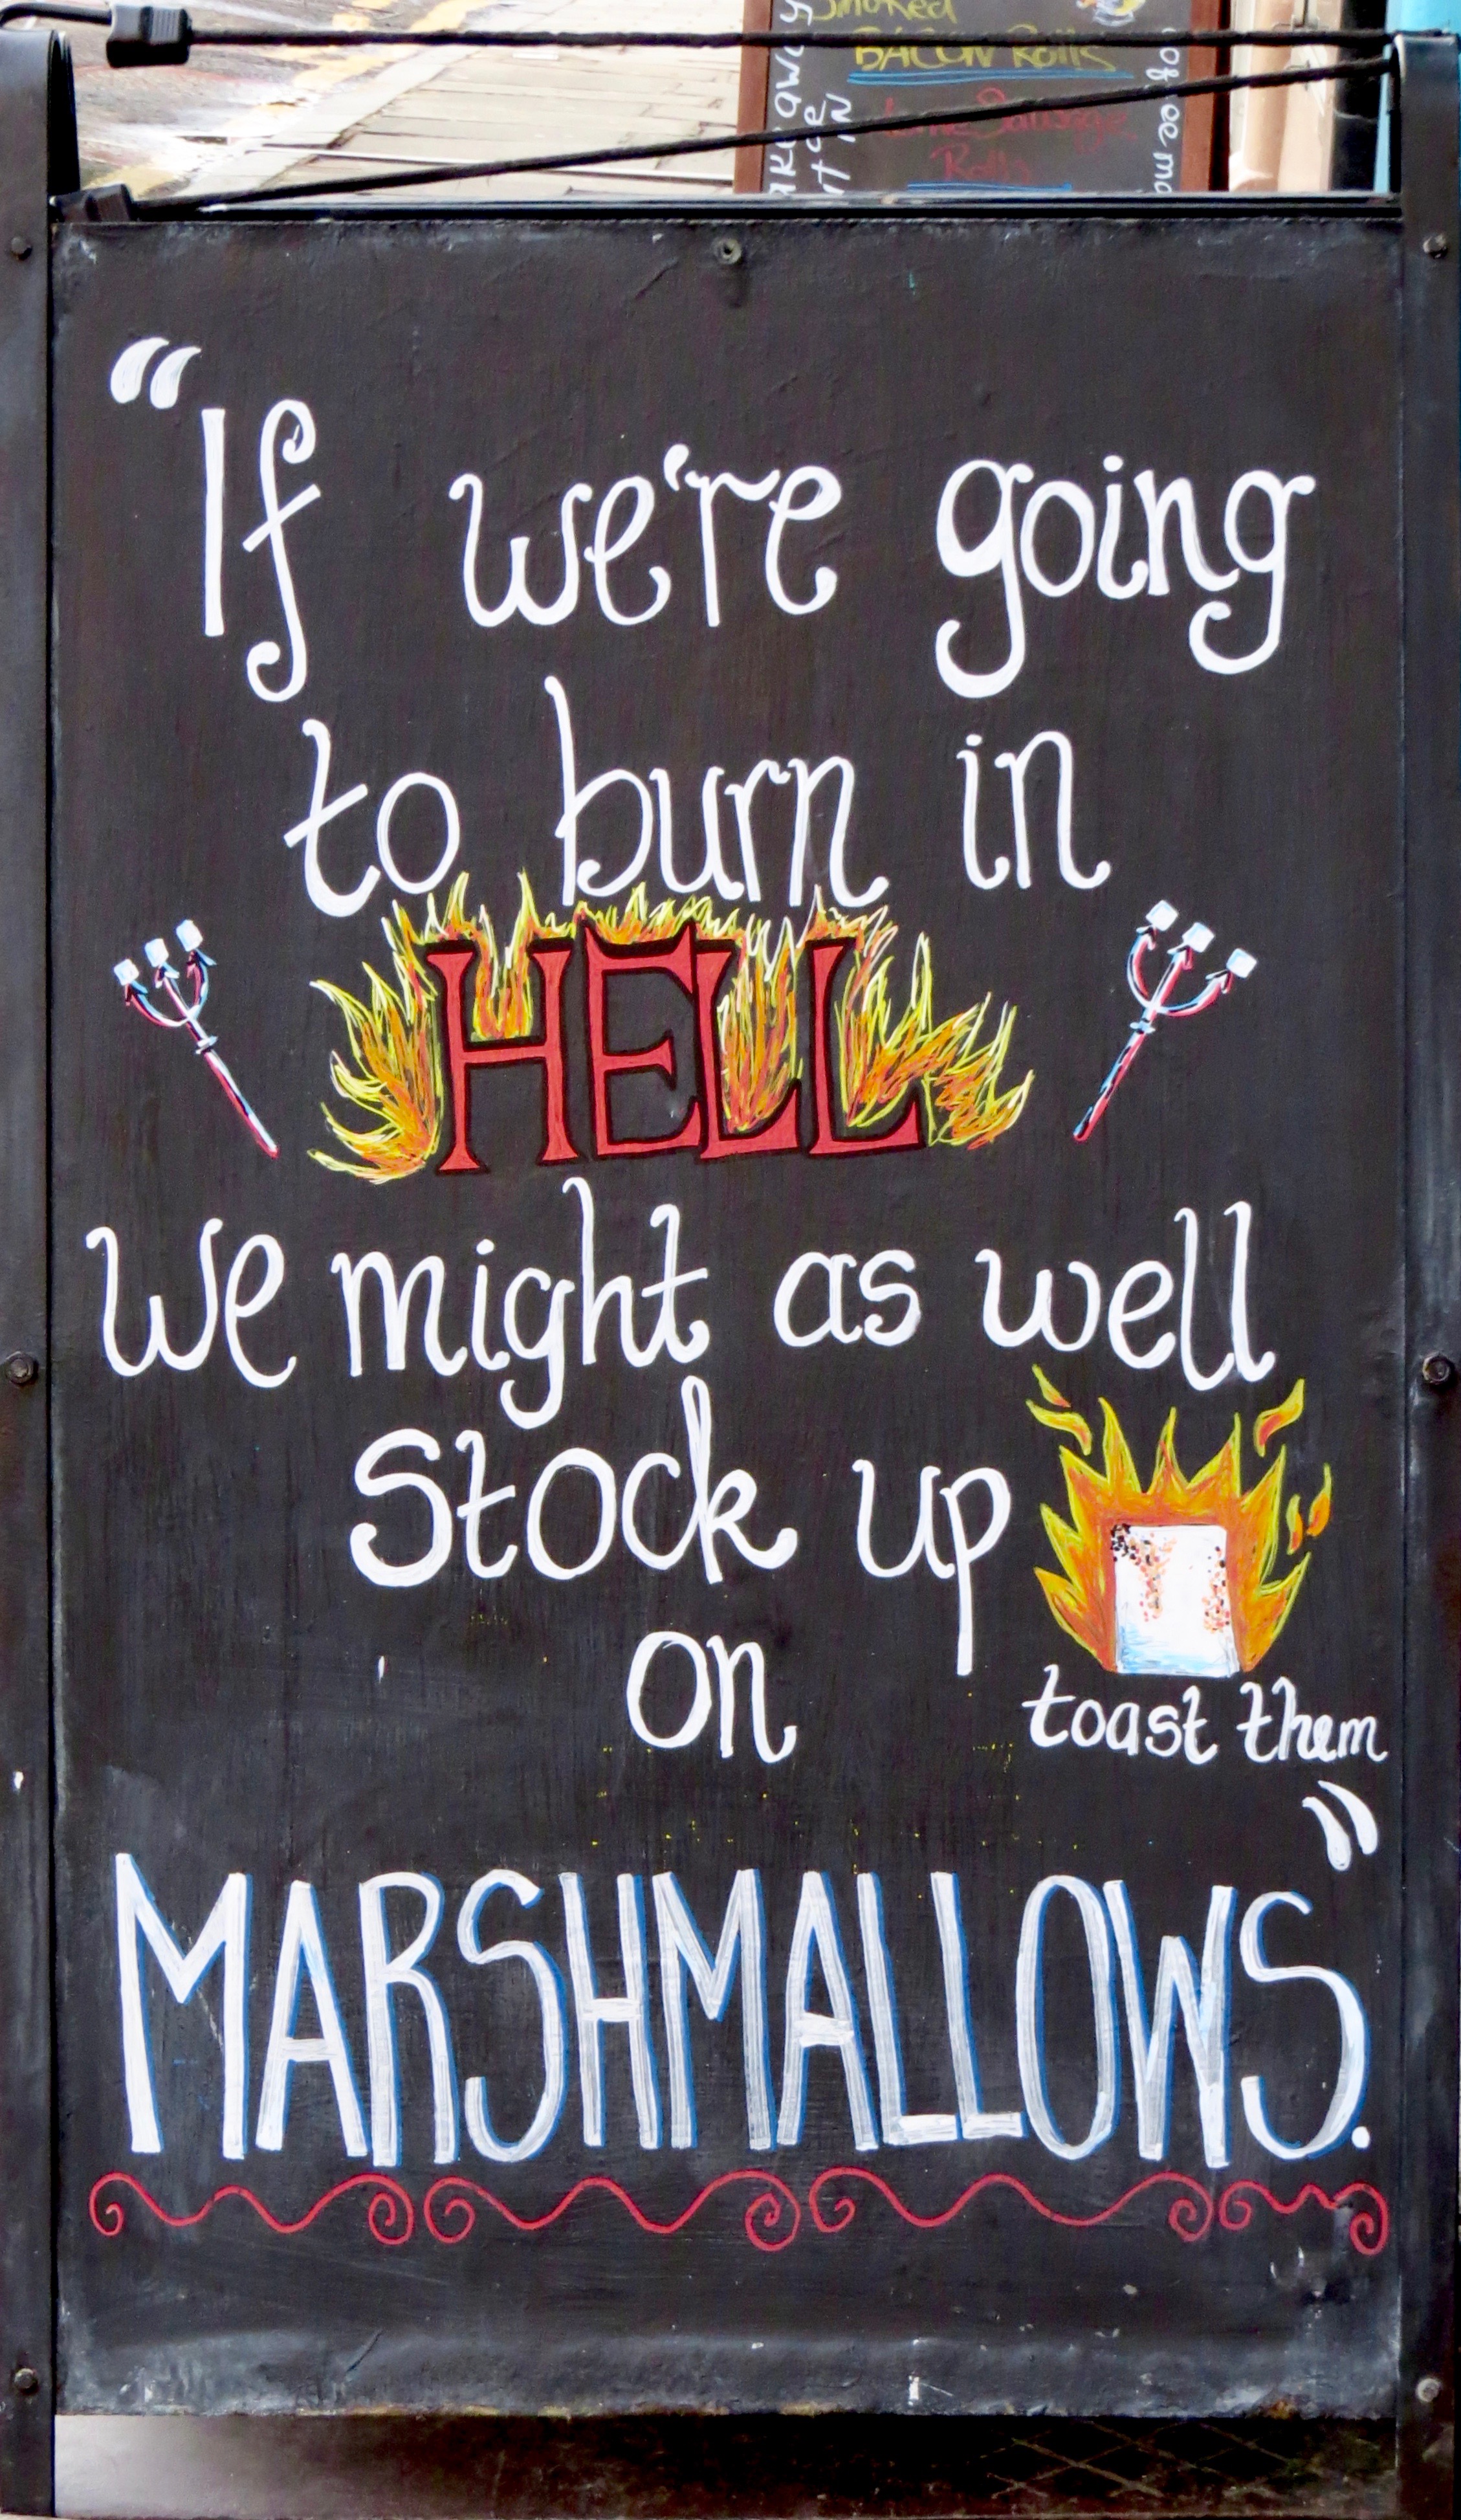 Smoked
BACON Rolls
Sausage
Rolls
"If we're going
to burn in
HELL
We might as well
Stock up
on
toast them
MARSHMALLOWS."